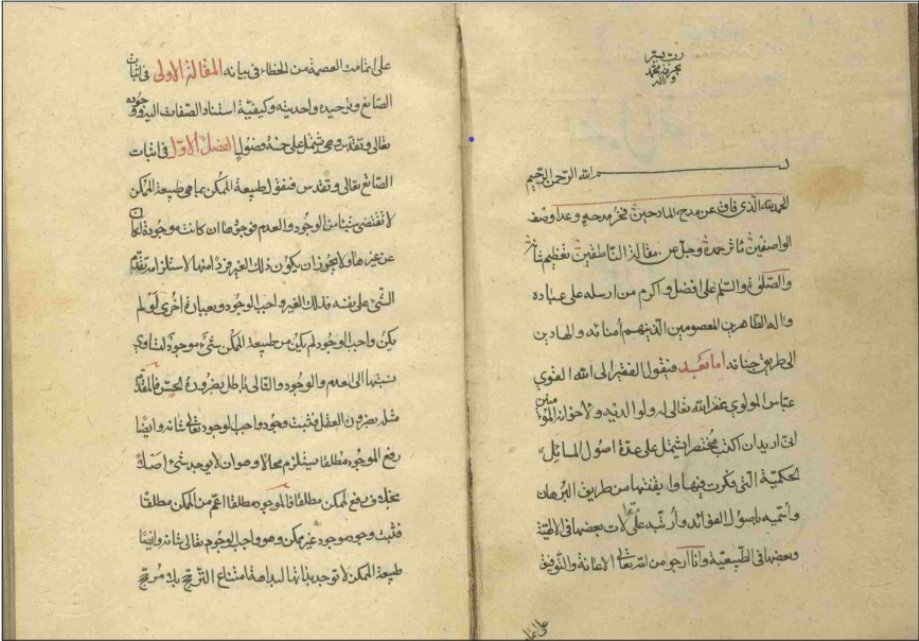 رب یسر
بحرمة محمد
وآله
بسم الله الرحمن الرحیم
الحمد لله الذی فاق عن مدح المادحین فخر مدحه وعدا وصف
الواصفین مآثر حمده وجل عن مقالة الناطقین تعظیم شانه
والصلوة والسلم علی افضل واکرم من ارسله علی عباده
واله الطاهرین المعصومین الذینهم امنائه والهادین
الی طریق جنانه اما بعد فیقول الفقیر الی الله القوی
عباس المولوی غفر الله تعالی له ولوالدیه ولاخوانه المؤمنین
انی ارید ان اکتب مختصرا یشتمل علی عدة اصول المسائل
الحکمیة التی فکرت فیها وایقنتها من طریق البرهان
واسمیه باصول الفوائد وارتبه علی مقالات بعضها فی الالهیة
وبعضها فی الطبیعیة وانا ارجو من الله تعالی الاعانة والتوفیق
علی اتمامه والعصمة من الخطاء فی بیانه المقالة الاولی فی اثبات
الصانع وتوحیده واحدیته وکیفیة استناد الصفات الیه ووجوده
تعالی وتقدس وهی تشتمل علی خمسة فصول الفصل الاول فی اثبات
الصانع تعالی وتقدس فنقول طبیعة الممکن بما هی طبیعة الممکن
لا تقتضی شیئا من الوجود والعدم فوجودها ان کانت موجودة لکان
عن غیرها ولا یجوز ان یکون ذلک الغیر فردا منها لاستلزامه تقدم
الشیء علی نفسه فذلک الغیر واجب الوجود وبعبارة اخری لو لم
یکن واجب الوجود لم یکن من طبیعة الممکن شیء موجود لتساوی
نسبتها الی العدم والوجود والتالی باطل بضرورة الحس فالمقدم
مثله بضرورة العقل فثبت وجود واجب الوجود تعالی شانه وایضا
رفع الموجود مطلقا یستلزم محالا وهو ان لا یوجد شیء اصلا
بخلاف رفع الممکن مطلقا فالموجود مطلقا اعم من الممکن مطلقا
فثبت وجود موجود غیر ممکن وهو واجب الوجود تعالی شانه وایضا
طبیعة الممکن لا توجد بذاتها لبداهة امتناع الترجح بلا مرجح